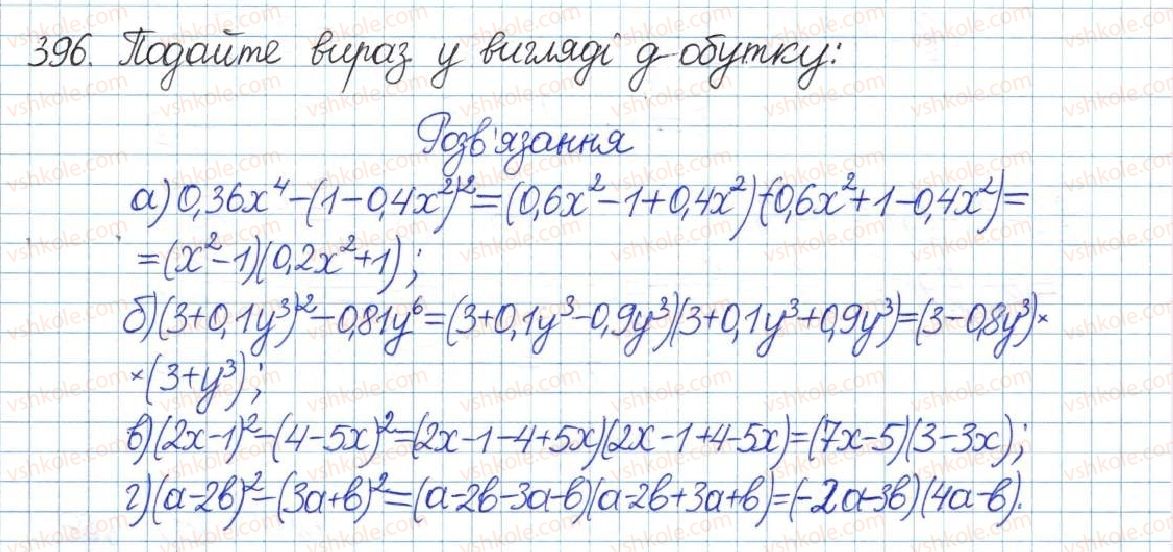 396. Подайте вираз у вигляді добутку:
Розв'язання
а) 0,36x⁴ - (1 - 0,4x²)² = (0,6x² - 1 + 0,4x²)(0,6x² + 1 - 0,4x²) =
= (x² - 1)(0,2x² + 1);
б) (3 + 0,1y³)² - 0,81y⁶ = (3 + 0,1y³ - 0,9y³)(3 + 0,1y³ + 0,9y³) = (3 - 0,8y³) ×
× (3 + y³);
в) (2x - 1)² - (4 - 5x)² = (2x - 1 - 4 + 5x)(2x - 1 + 4 - 5x) = (7x - 5)(3 - 3x);
г) (a - 2b)² - (3a + b)² = (a - 2b - 3a - b)(a - 2b + 3a + b) = (-2a - 3b)(4a - b).